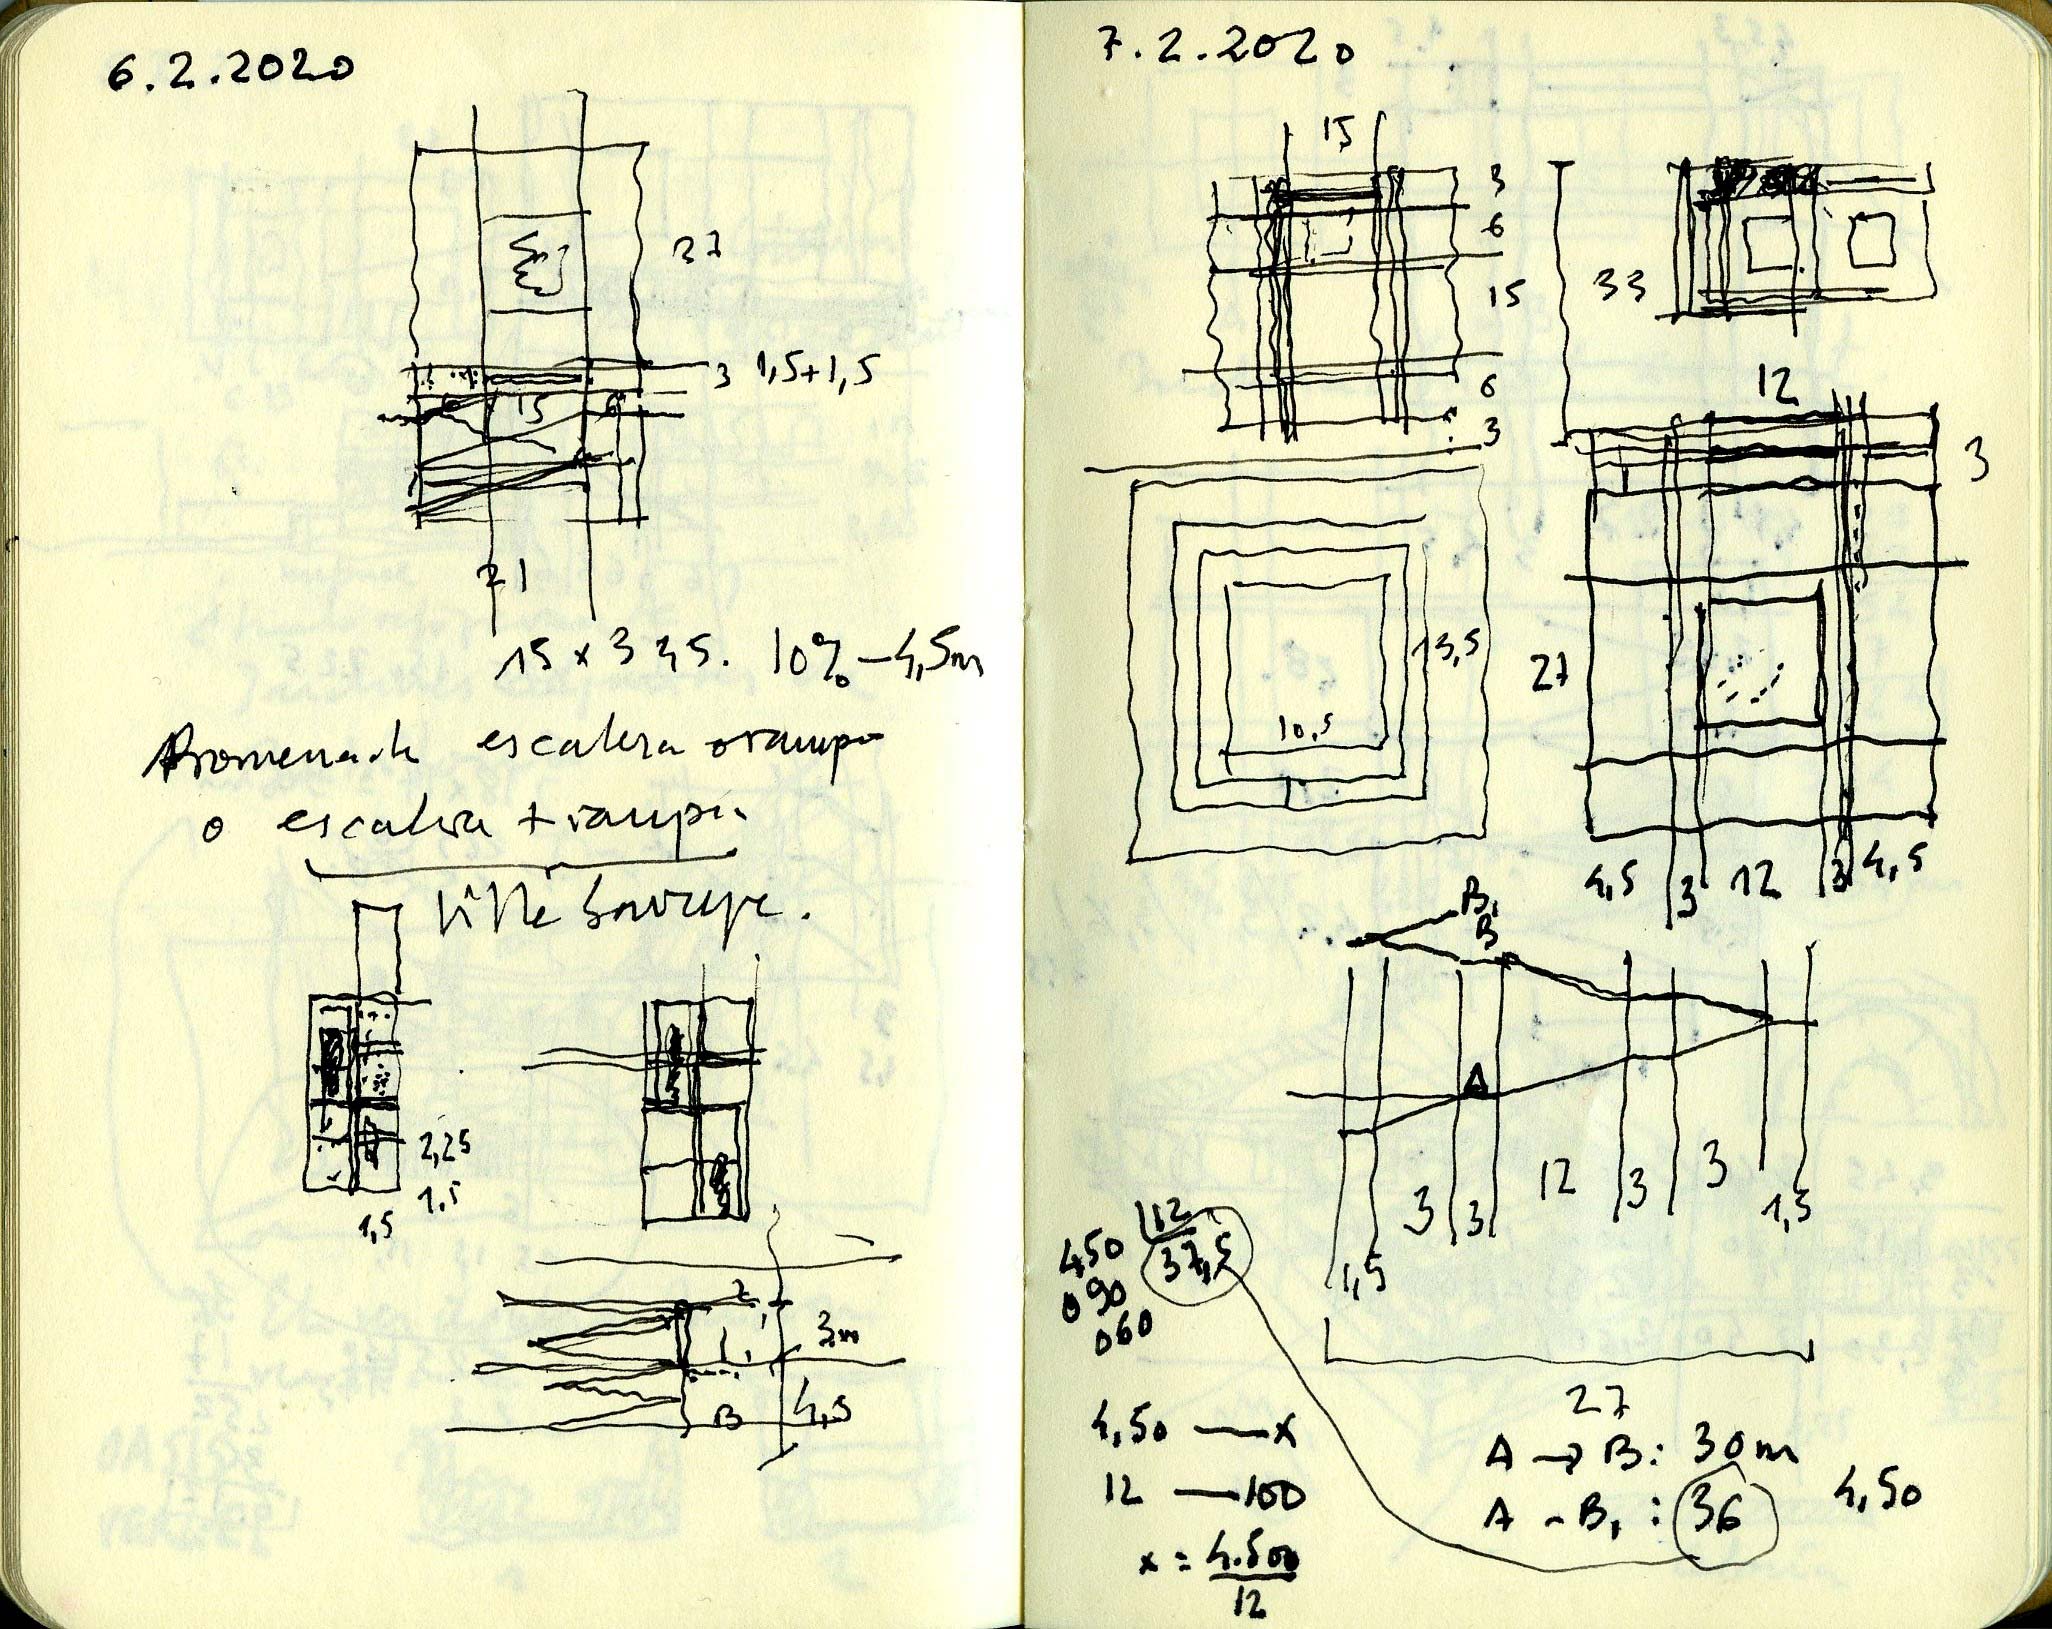 6.2.2020
27
3 1,5+1,5
6 15 6
21
15 x 3 45. 10% - 4,5m
Promenade escalera o rampa
o escalera + rampa.
Ville Savoye.
2,25
1,5
1,5
3m
B 4,5
7.2.2020
15
3
6
15
6
3
33
12
3
13,5
10,5
27
4,5 3 12 3 4,5
B1
B
A
1,5 3 3 12 3 3 1,5
27
450 12
090 37,5
060
4,50 — x
12 — 100
x = 4.500
12
A → B: 30m
A - B1: 36
4,50